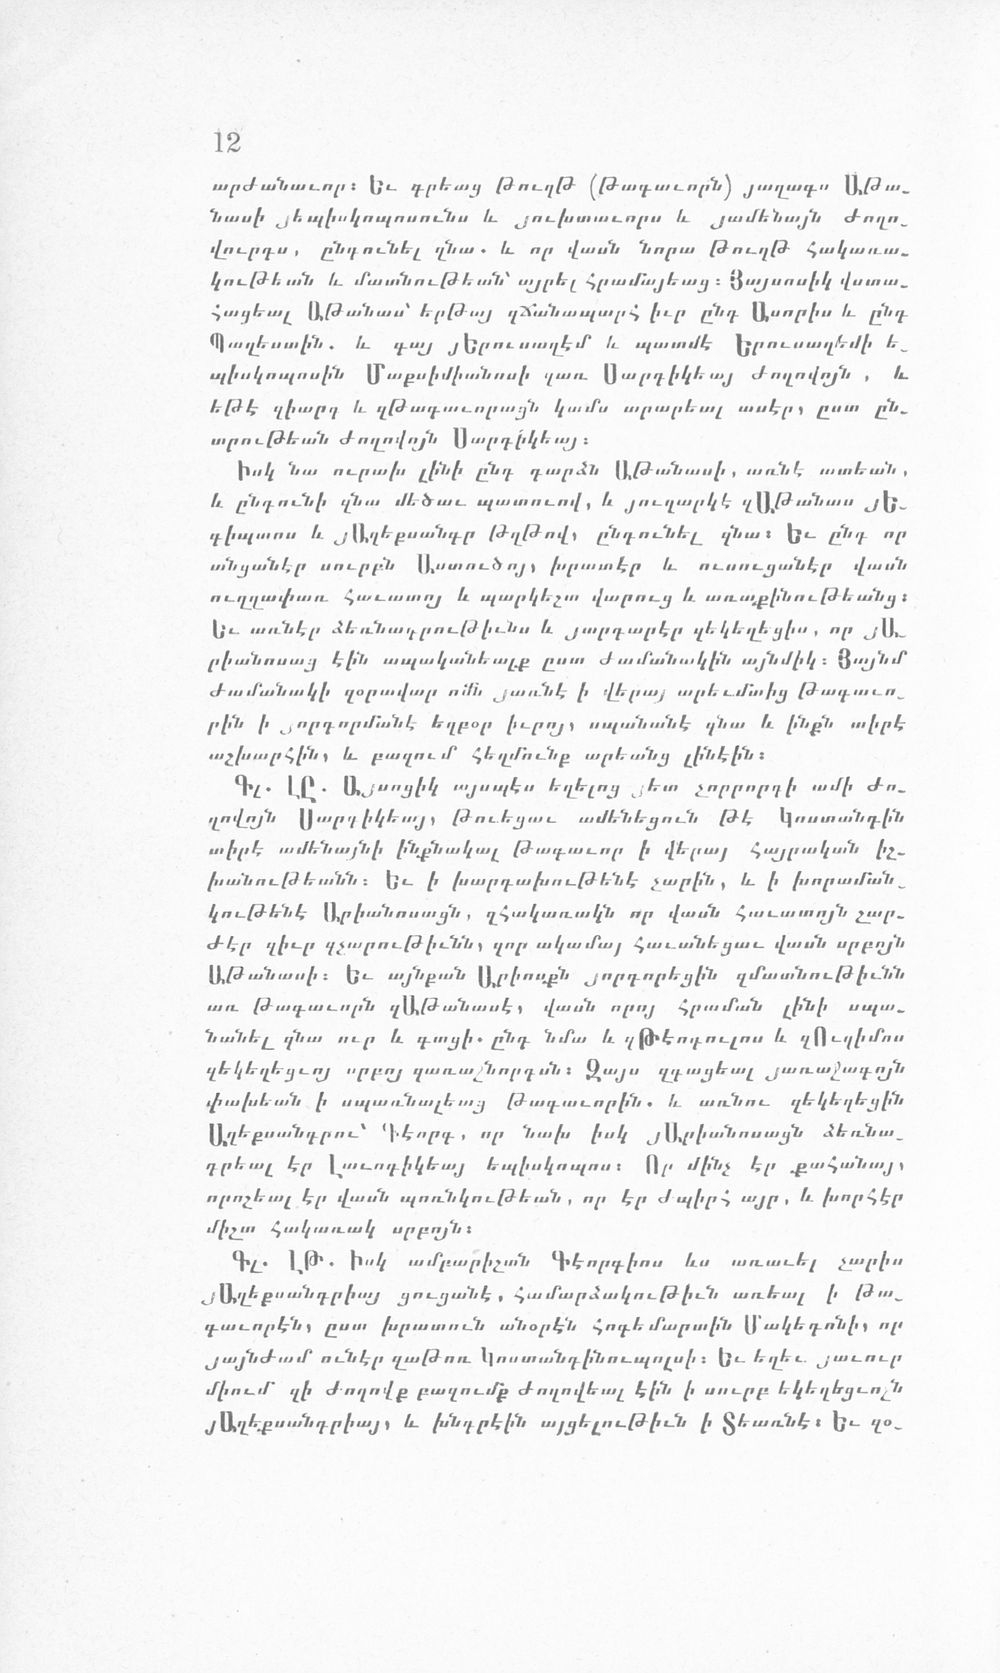 12
արժանաւոր։ Եւ գրեաց թուղթ (թագաւորն) յաղագս Աթա֊
նասի յեպիսկոպոսունս և յուխտաւորս և յամենայն ժողո֊
վուրդս, ընդունել զնա. և որ վասն նորա թուղթ հակառա֊
կութեան և մատնութեան՝ այրել հրամայեաց։ Յայսոսիկ վստա֊
հացեալ Աթանաս՝ երթայ զճանապարհ իւր ընդ Ասորիս և ընդ
Պաղեստին. և գայ յԵրուսաղէմ և պատմէ Երուսաղեմի ե֊
պիսկոպոսին Մաքսիմիանոսի զառ Սարդիկեայ ժողովոյն, և
եթէ զիարդ և զթագաւորացն կամս արարեալ ասէր, ըստ ըն֊
տրութեան ժողովոյն Սարդիկեայ։
Իսկ նա ուրախ լինի ընդ դարձն Աթանասի, առնէ ատեան,
և ընդունի զնա մեծաւ պատուով, և յուղարկէ զԱթանաս յԵ֊
գիպտոս և յԱղեքսանդր թղթով, ընդունել զնա։ Եւ ընդ որ
անցանէր սուրբն Աստուծոյ, խրատէր և ուսուցանէր վասն
ուղղափառ հաւատոյ և պարկեշտ վարուց և առաքինութեանց։
Եւ առնէր ձեռնադրութիւնս և յարդարէր զեկեղեցիս, որ յԱ֊
րիանոսաց էին ապականեալք ըստ ժամանակին այնմիկ։ Յայնմ
ժամանակի զօրավար ոմն յառնէ ի վերայ արեւմտից թագաւո֊
րին ի յորդորմանէ եղբօր իւրոյ, սպանանէ զնա և ինքն տիրէ
աշխարհին, և բազում հեղմունք արեանց լինէին։
Գլ. ԼԸ. Այսոցիկ այսպէս եղելոց յետ չորրորդի ամի ժո֊
ղովոյն Սարդիկեայ, թուեցաւ ամենեցուն թէ Կոստանդին
տիրէ ամենայնի ինքնակալ թագաւոր ի վերայ հայրական իշ֊
խանութեանն։ Եւ ի խարդախութենէ չարին, և ի խորաման֊
կութենէ Արիանոսացն, զհակառակն որ վասն հաւատոյն շար֊
ժէր զիւր զչարութիւնն, զոր ակամայ հաւանեցաւ վասն սրբոյն
Աթանասի։ Եւ այնքան Արիոսքն յորդորեցին զմատնութիւնն
առ թագաւորն զԱթանասէ, վասն որոյ հրաման լինի սպա֊
նանել զնա ուր և գտցի. ընդ նմա և զԹէոդուլոս և զՈւզիմոս
զեկեղեցւոյ սրբոյ զառաջնորդսն։ Զայս զգացեալ յառաջագոյն
փախեան ի սպառնալեաց թագաւորին. և առնու զեկեղեցին
Աղեքսանդրու՝ Գէորգ, որ նախ իսկ յԱրիանոսացն ձեռնա֊
դրեալ էր Լաւոդիկեայ եպիսկոպոս։ Որ մինչ էր քահանայ,
որոշեալ էր վասն պոռնկութեան, որ էր ժպիրհ այր, և խորհէր
միշտ հակառակ սրբոյն։
Գլ. ԼԹ. Իսկ ամբարիշտն Գէորգիոս ևս առաւել չարիս
յԱղեքսանդրիայ ցուցանէ, համարձակութիւն առեալ ի թա֊
գաւորէն, ըստ խրատուն անօրէն հոգեմարտին Մակեդոնի, որ
յայնժամ ունէր զաթոռ Կոստանդինուպոլսի։ Եւ եղեւ յաւուր
միում՝ զի ժողովք բազումք ժողովեալ էին ի սուրբ եկեղեցւոջն
յԱղեքսանդրիայ, և խնդրէին այցելութիւն ի Տեառնէ։ Եւ զօ֊